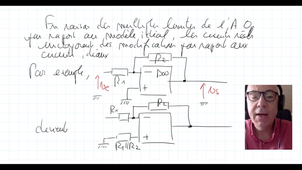 En raison des multiples limites de l'A.O.
par rapport au modèle idéal, les circuits réels
incorporent des modifications par rapport aux
circuits idéaux
Par exemple,
R2
R1
Ve
∞
Vs
devient
R2
R1
R1//R2